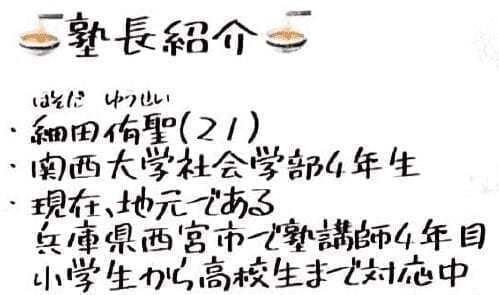 塾長紹介
ほそだ ゆうせい
・細田侑聖(21)
・関西大学社会学部4年生
・現在、地元である
兵庫県西宮市で塾講師4年目
小学生から高校生まで対応中